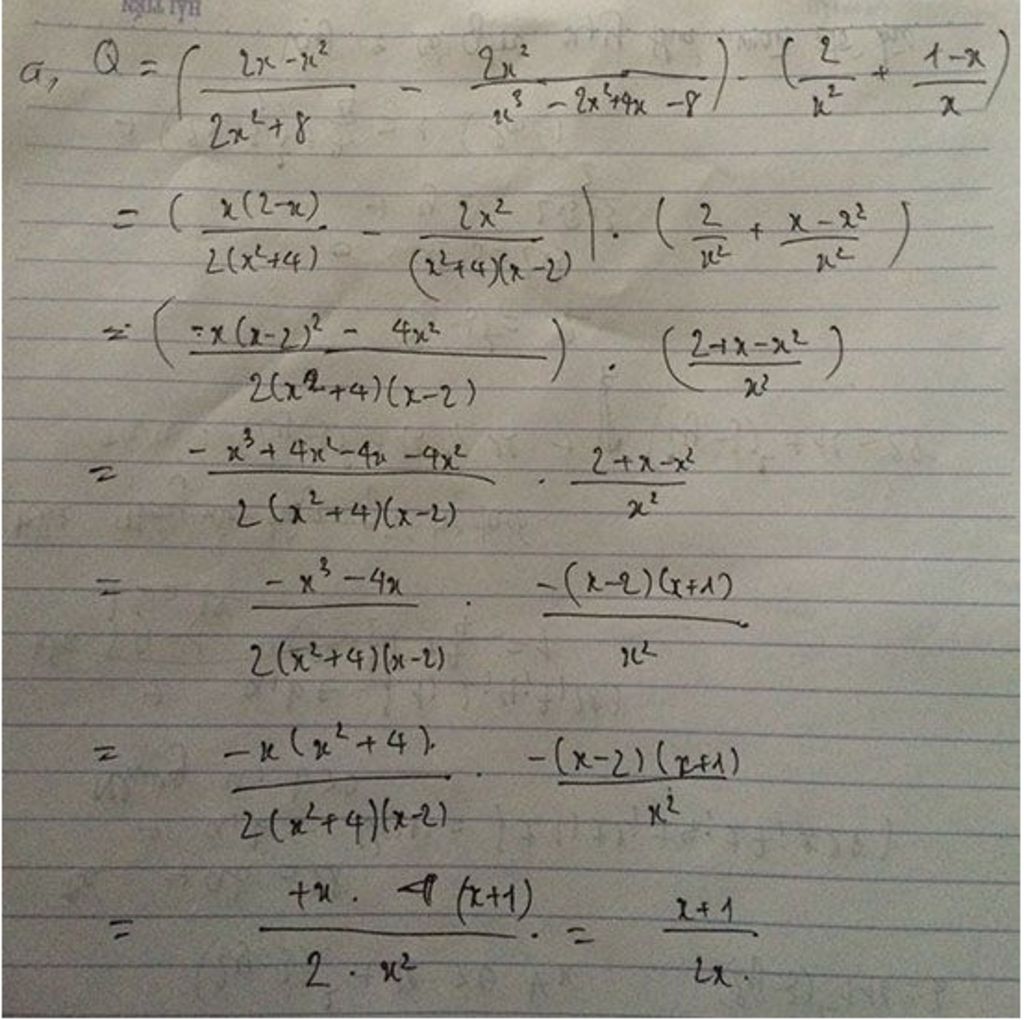 HẢI TIẾN
a, Q = ( (2x - x²)/(2x² + 8) - 2x²/(x³ - 2x² + 4x - 8) ) - ( 2/x² + (1-x)/x )
= ( x(2-x)/(2(x²+4)) - 2x²/((x²+4)(x-2)) ) . ( 2/x² + (x-x²)/x² )
= ( (-x(x-2)² - 4x²)/(2(x²+4)(x-2)) ) . ( (2+x-x²)/x² )
= (-x³ + 4x² - 4x - 4x²)/(2(x²+4)(x-2)) . (2+x-x²)/x²
= (-x³ - 4x)/(2(x²+4)(x-2)) . -(x-2)(x+1)/x²
= -x(x²+4)/(2(x²+4)(x-2)) . -(x-2)(x+1)/x²
= (+x . (x+1))/(2 . x²) . = (x+1)/(2x) .